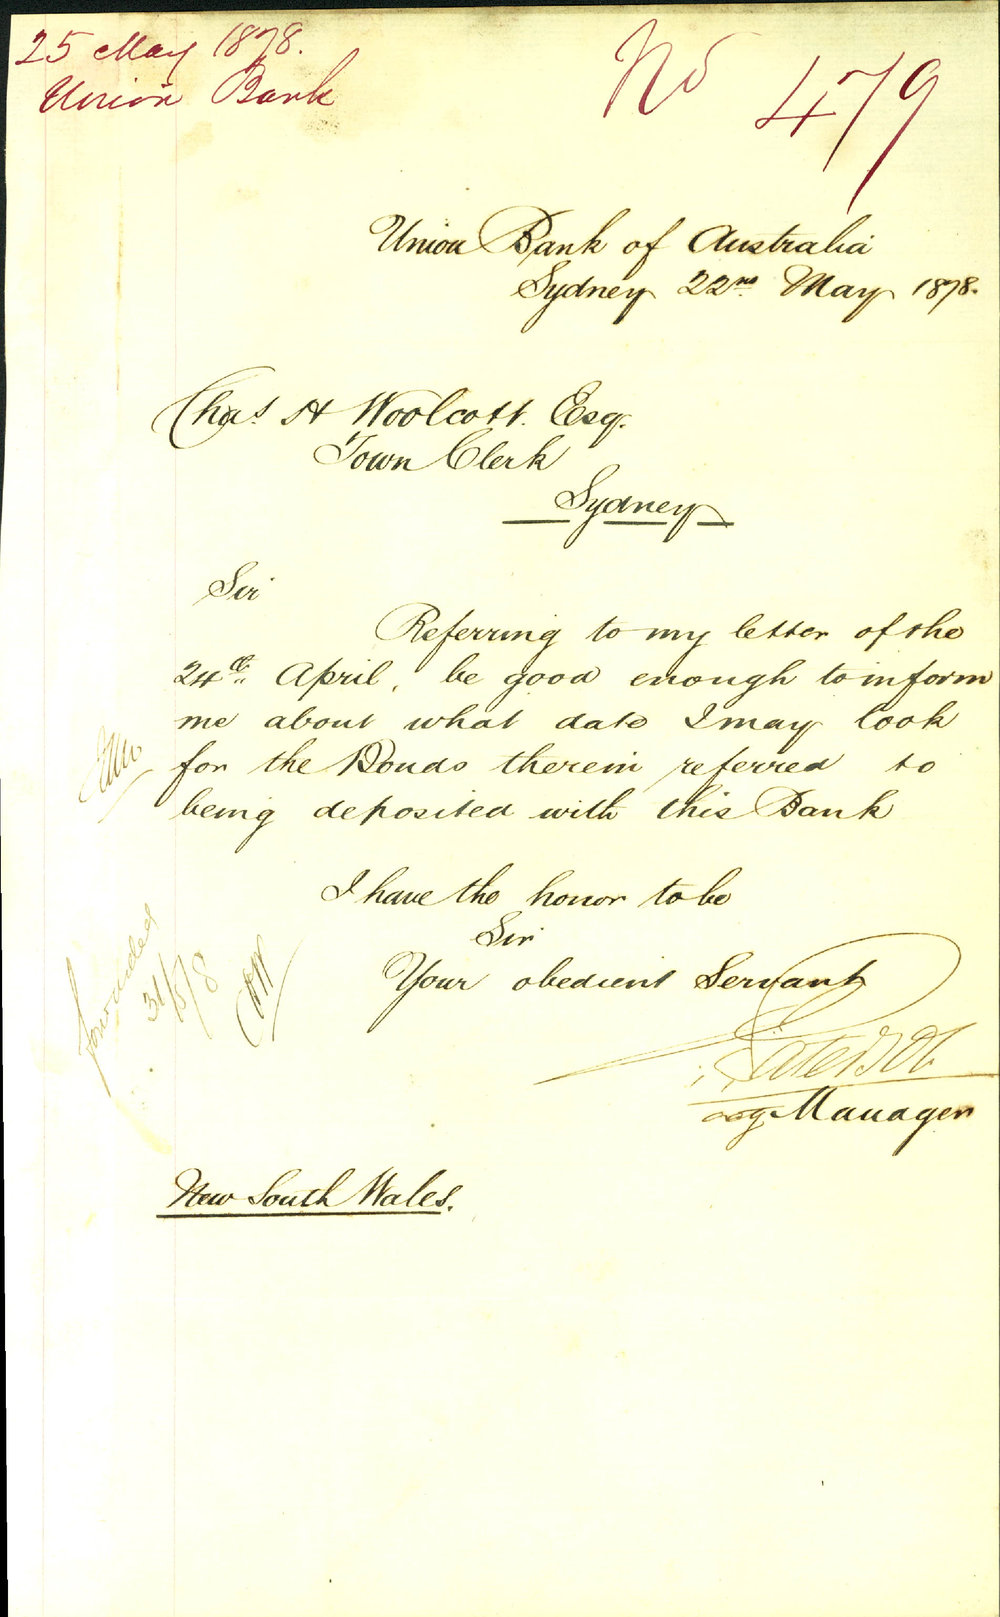 25 May 1878.
Union Bank
No 479
Union Bank of Australia
Sydney 22nd May 1878.
Chas H Woolcott. Esq.
Town Clerk
Sydney
Sir
Referring to my letter of the
24th April, be good enough to inform
me about what date I may look
for the Bonds therein referred to
being deposited with this Bank
I have the honor to be
Sir
Your obedient Servant
Manager
forwarded
31/5/8
CHW
New South Wales.